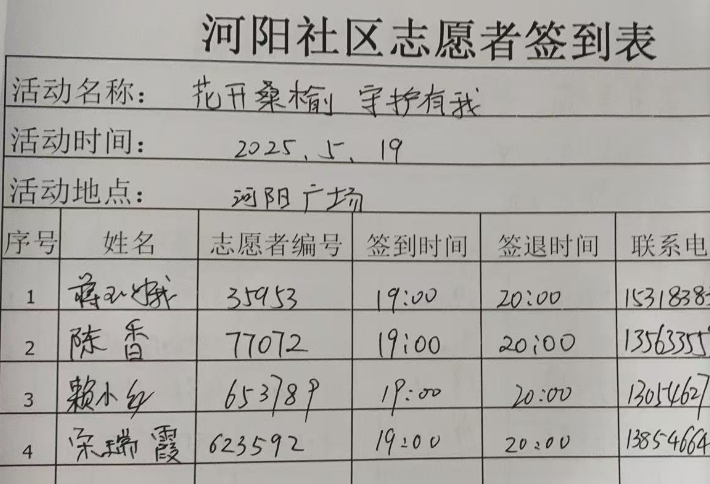 河阳社区志愿者签到表
活动名称： 花开桑榆 守护有我
活动时间： 2025.5.19
活动地点： 河阳广场
序号 姓名 志愿者编号 签到时间 签退时间 联系电
1 蒋 35953 19:00 20:00 1531838
2 陈香 77072 19:00 20:00 13563355
3 赖小乡 653789 19:00 20:00 13054627
4 宋瑞霞 623592 19:00 20:00 13854664